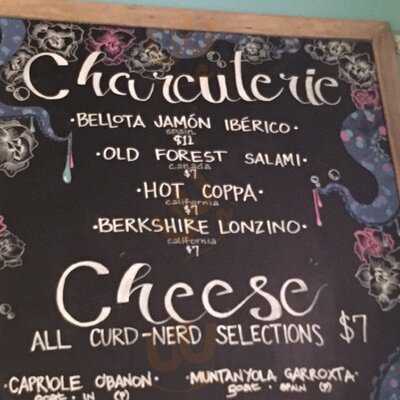 Charcuterie
·BELLOTA JAMÓN IBÉRICO·
spain
$11
·OLD FOREST SALAMI·
canada
$7
·HOT COPPA·
california
$7
·BERKSHIRE LONZINO·
california
$7
Cheese
ALL CURD-NERD SELECTIONS $7
·CAPRIOLE O'BANON· ·MUNTANYOLA GARROXTA·
GOAT · IN (P) GOAT · SPAIN (P)